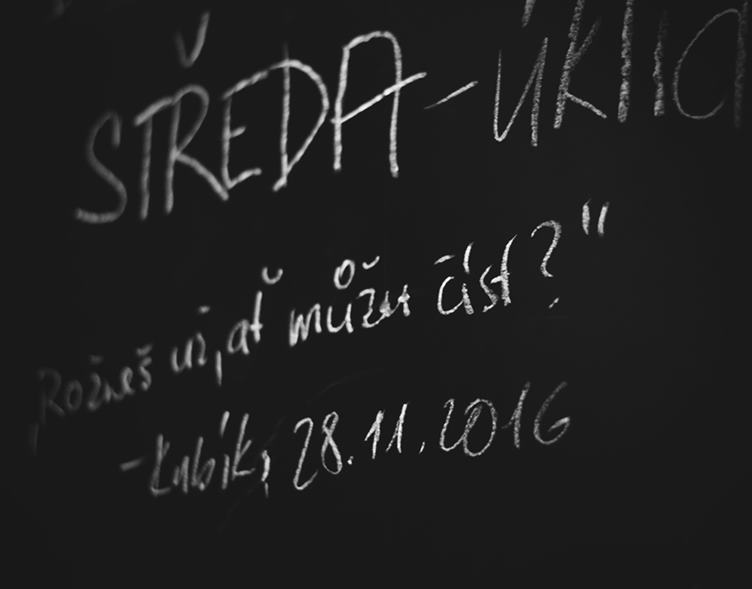 STŘEDA - ÚKLID
„Rožneš už, ať můžu číst?“
- Kubík, 28.11.2016